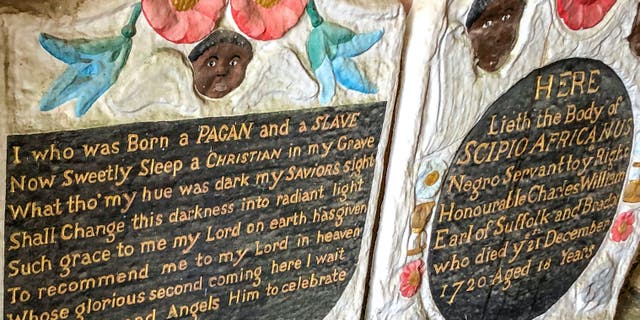 I who was Born a PAGAN and a SLAVE
Now Sweetly Sleep a CHRISTIAN in my Grave
What tho' my hue was dark my SAVIORS sight
Shall Change this darkness into radiant light
Such grace to me my Lord on earth has given
To recommend me to my Lord in heaven
Whose glorious second coming here I wait
and Angels Him to celebrate
HERE
Lieth the Body of
SCIPIO AFRICANUS
Negro Servant to ye Right
Honourable Charles William
Earl of Suffolk and Bradon
who died ye 21st December
1720 Aged 18 Years